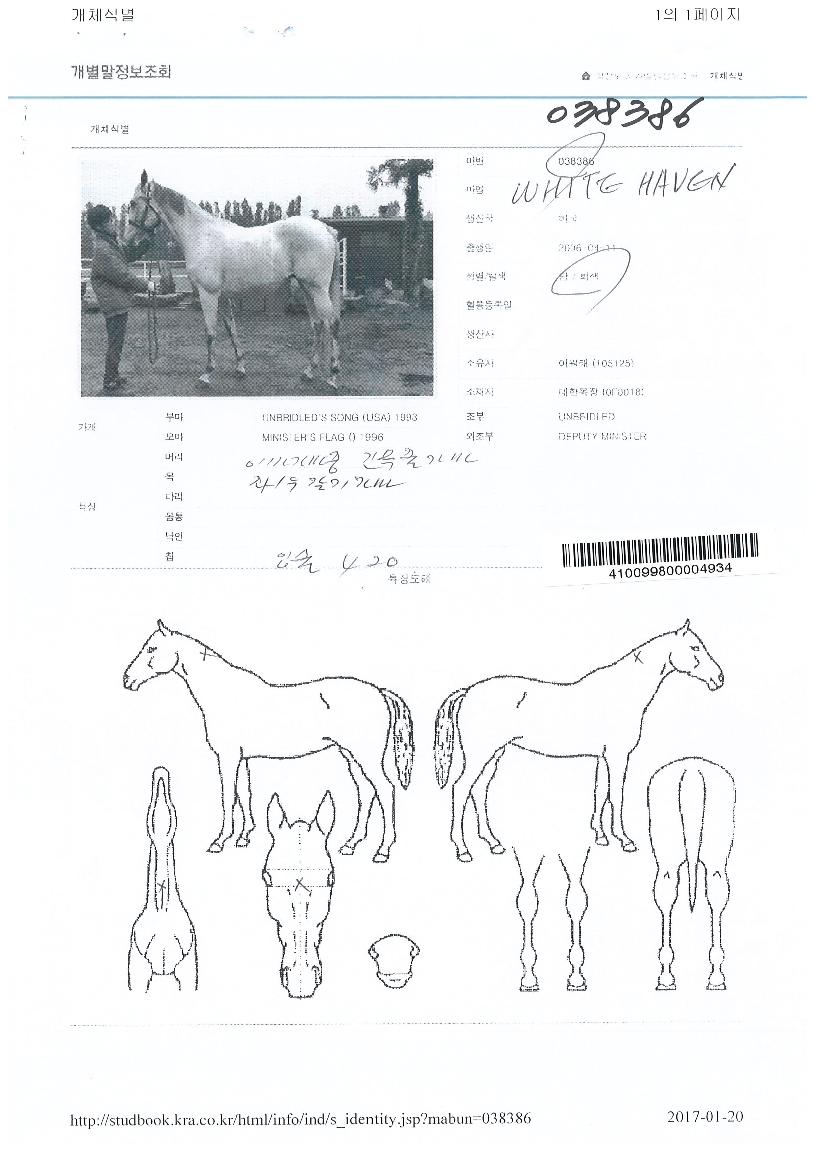 개체식별 1의 1페이지
개별말정보조회
개체식별
038386
개체식별
마번 038386
마명 WHITE HAVEN
생산국
출생일
성별/털색 회색
혈통등록일
생산자
소유자
소재지 대한목장
가계 부마 UNBRIDLED'S SONG (USA) 1993 조부 UNBRIDLED
모마 MINISTER'S FLAG () 1996 외조부 DEPUTY MINISTER
머리
목
다리
특징 몸통
낙인
칩 420
특징도해
410099800004934
http://studbook.kra.co.kr/html/info/ind/s_identity.jsp?mabun=038386 2017-01-20